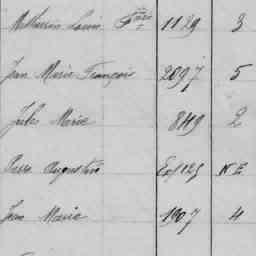 Mathurin Louis Marie 1129 3
Jean Marie François 2097 5
Jules Marie 849 2
Pierre Augustin Ex/125 N E
Jean Marie 1907 4